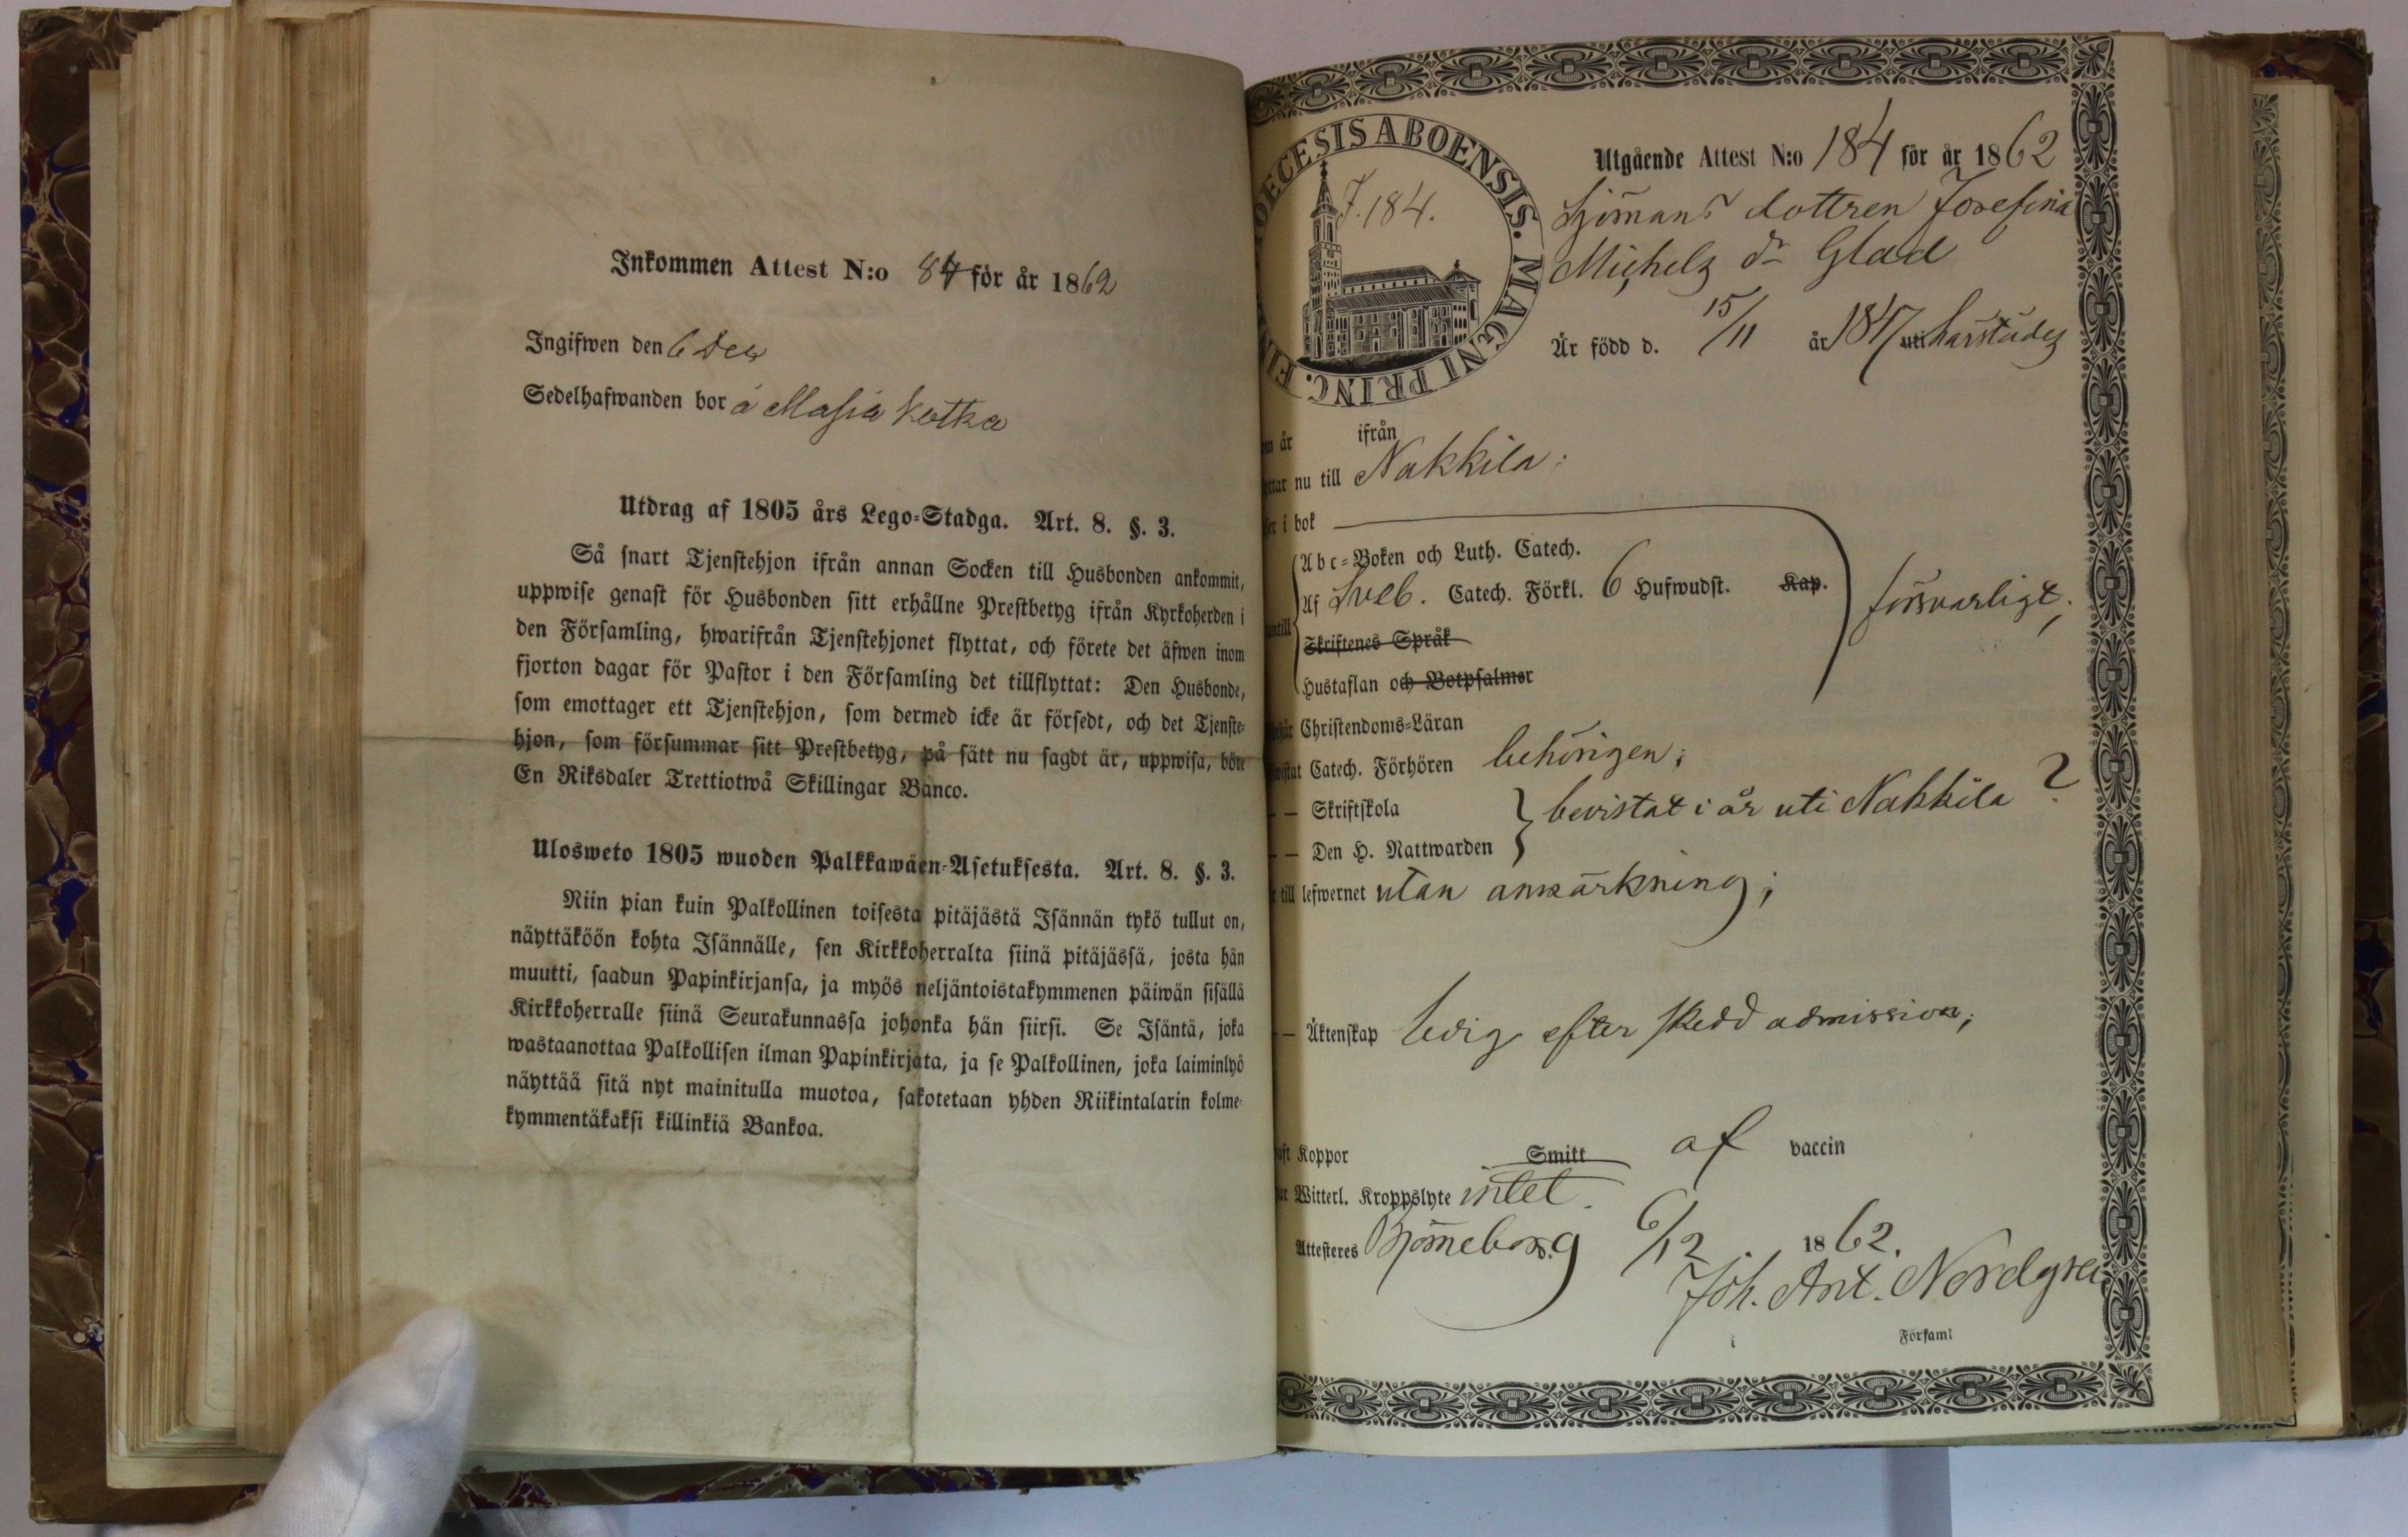 Inkommen Attest N:o 84 för år 1862
Ingifwen den 6 Dec
Sedelhafwanden bor å Masia Kotka
Utdrag af 1805 års Lego-Stadga. Art. 8. §. 3.
Så snart Tjenstehjon ifrån annan Socken till Husbonden ankommit,
uppwise genast för Husbonden sitt erhållne Prestbetyg ifrån Kyrkoherden i
den Församling, hwarifrån Tjenstehjonet flyttat, och förete det äfwen inom
fjorton dagar för Pastor i den Församling det tillflyttat: Den Husbonde,
som emottager ett Tjenstehjon, som dermed icke är försedt, och det Tjenste-
hjon, som försummar sitt Prestbetyg, på sätt nu sagdt är, uppwisa, böte
En Riksdaler Trettiotwå Skillingar Banco.
Ulosweto 1805 wuoden Palkkawäen-Asetuksesta. Art. 8. §. 3.
Niin pian kuin Palkollinen toisesta pitäjästä Isännän tykö tullut on,
näyttäköön kohta Isännälle, sen Kirkkoherralta siinä pitäjässä, josta hän
muutti, saadun Papinkirjansa, ja myös neljäntoistakymmenen päiwän sisällä
Kirkkoherralle siinä Seurakunnassa johonka hän siirsi. Se Isäntä, joka
wastaanottaa Palkollisen ilman Papinkirjata, ja se Palkollinen, joka laiminlyö
näyttää sitä nyt mainitulla muotoa, sakotetaan yhden Riikintalarin kolme-
kymmentäkaksi killinkiä Bankoa.
OECESIS ABOENSIS. MAGNI PRINC. FI
J. 184.
Utgående Attest N:o 184 för år 1862
Sjömans dottren Josefina
Michels dr Glad
Är född d. 15/11 år 1847 uti härstädes
år ifrån
nu till Nakkila;
i bok
Abc-Boken och Luth. Catech.
Af Sveb. Catech. Förkl. 6 Hufwudst. Kap. försvarligt;
Skriftenes Språk
Hustaflan och Botpsalmer
Christendoms-Läran
Catech. Förhören behörigen;
— Skriftskola
bevistat i år uti Nakkila ?
— Den H. Nattwarden
till lefwernet utan anmärkning;
— Äktenskap ledig efter skedd admission;
Koppor Smitt af vaccin
Witterl. Kroppslyte intet.
Attesteres Björneborg d. 6/12 1862.
Joh. Ant. Nordgren
Församl